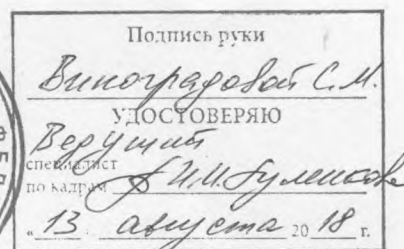 Подпись руки
Виноградовой С.М.
УДОСТОВЕРЯЮ
Ведущий
специалист
по кадрам И.И.
"13" августа 2018 г.